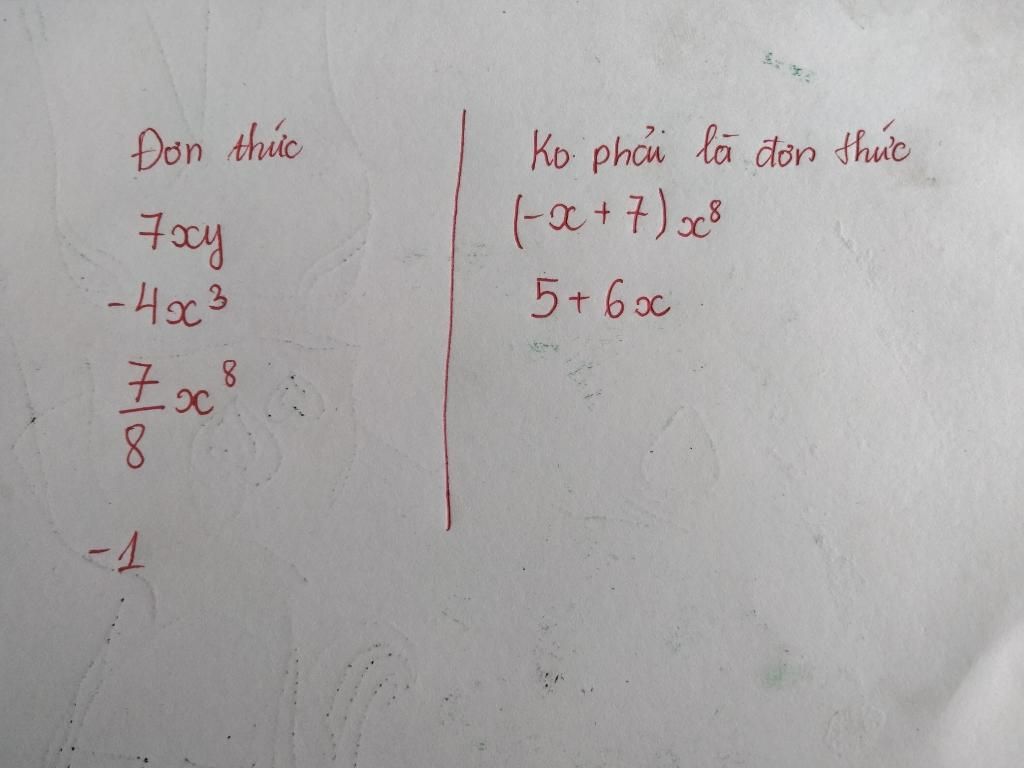 Đơn thức
7xy
-4x³
7/8 x⁸
-1
Ko phải là đơn thức
(-x + 7) x⁸
5 + 6x